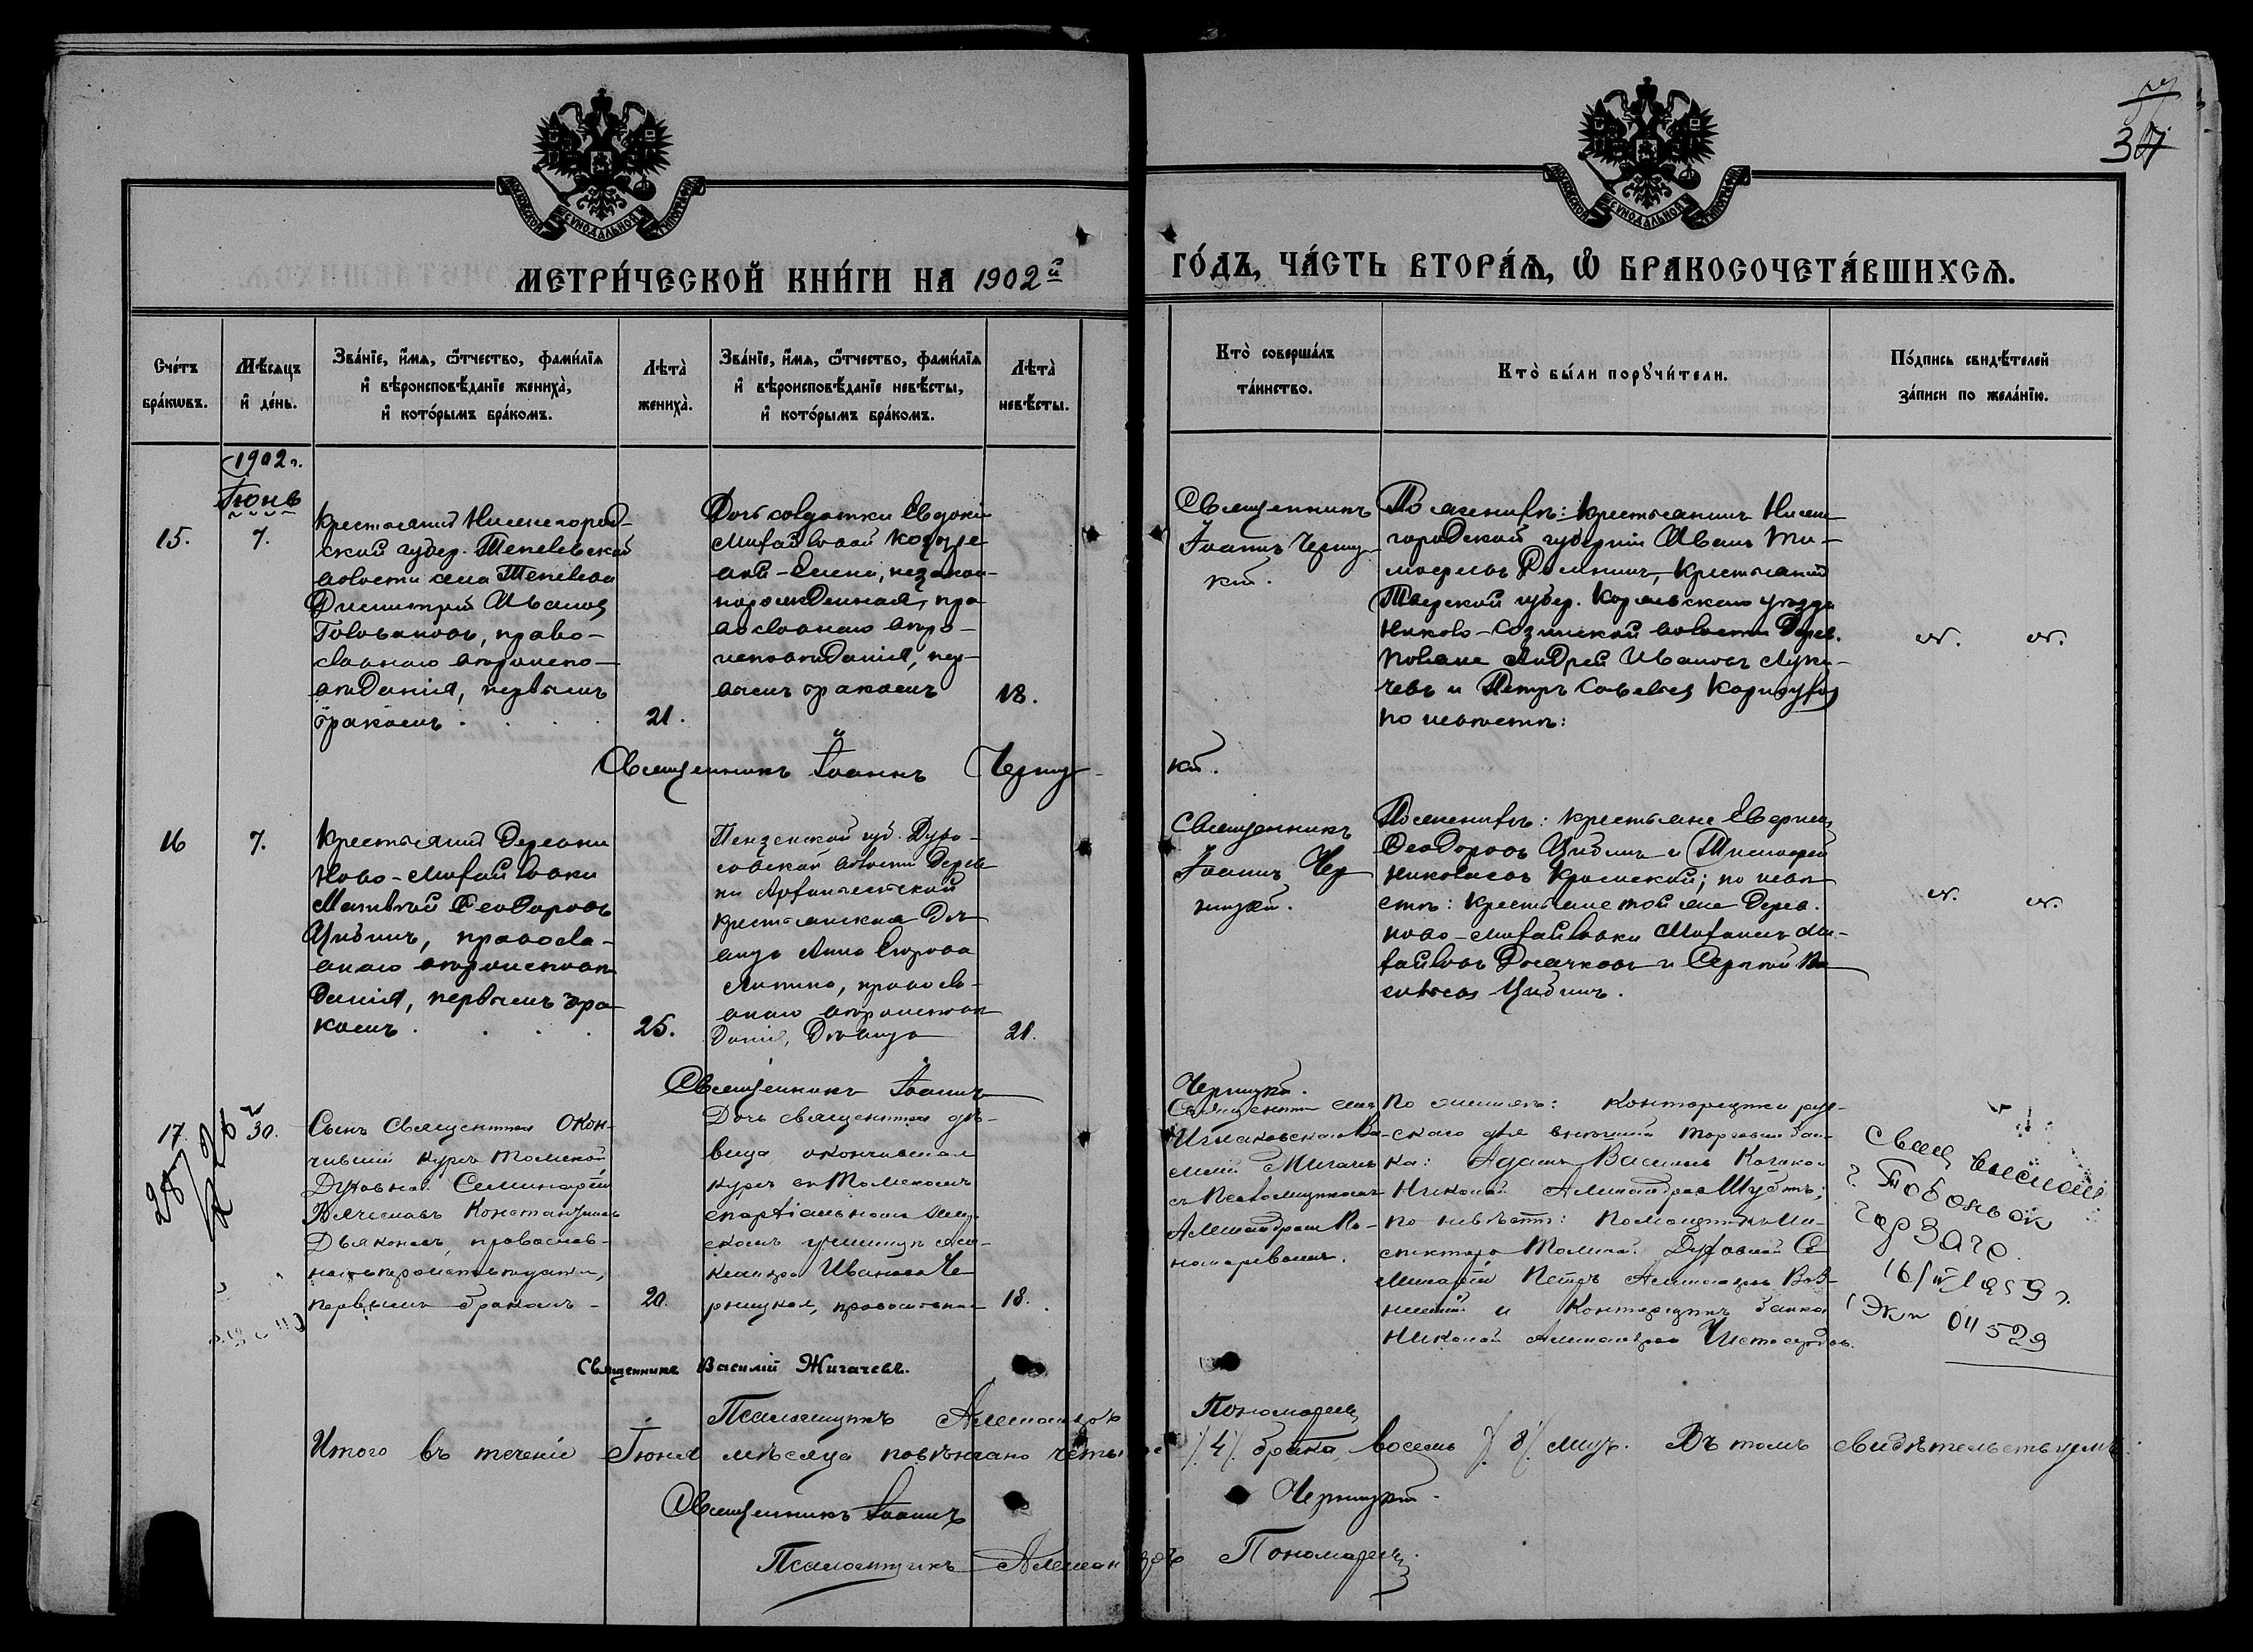 37
МЕТРИ́ЧЕСКОЙ КНИ́ГИ НА 1902й
ГО́ДЪ, ЧА́СТЬ ВТОРА́Ѧ, Ѽ БРАКОСОЧЕТА́ВШИХСѦ.
Сче́тъ бра́кѡвъ.
Мѣ́сѧцъ и҆ де́нь.
Зва́нїе, и҆́мѧ, ѻ҆́тчество, фами́лїѧ
и҆ вѣроисповѣ́данїе жениха̀,
и҆ кото́рымъ бра́комъ.
Лѣта̀ жениха̀.
Зва́нїе, и҆́мѧ, ѻ҆́тчество, фами́лїѧ
и҆ вѣроисповѣ́данїе невѣ́сты,
и҆ кото́рымъ бра́комъ.
Лѣта̀ невѣ́сты.
Кто̀ соверша́лъ та́инство.
Кто̀ бы́ли порꙋчи́тели.
По́дпись свидѣ́телей за́писи по жела́нїю.
1902 г.
Іюнь
15.
7.
Крестьянинъ Нижегород-
ской губер. Тепелевской
волости села Тепелева
Димитрій Ивановъ
Голованов, право-
славнаго вѣроиспо-
вѣданія, первымъ
бракомъ
21.
Дочь солдатки Евдокіи
Михайловой
Елена, незакон-
норожденная, пра
вославнаго вѣро-
исповѣданія, пер-
вымъ бракомъ
18.
Священникъ
Іоаннъ Черниц-
кій.
По женихѣ: крестьянинъ Ниже
городской губерніи Иванъ Ти-
мофеевъ Фоминъ, крестьянинъ
Тверской губер. уѣзда
волости Дерев.
Андрей Ивановъ Луки-
чевъ и Петръ Савельевъ
по невѣстѣ:
Священникъ Іоаннъ Черниц-
кій.
16
7.
Крестьянинъ Деревни
Ново-Михайловки
Матвѣй Феодоровъ
Цибинъ, правосла-
внаго вѣроисповѣ
данія, первымъ бра
комъ
25.
Пензенской губ.
волости Дерев
ни Архангельской
крестьянская дѣ
вица Анна Егорова
правосла-
внаго вѣроисповѣ
данія, дѣвица
21.
Священникъ
Іоаннъ Чер
ницкій.
По женихѣ: крестьяне
Феодоровъ Цибинъ и Тимофей
Николаевъ Крымской; по невѣ
стѣ: крестьяне той же Дерев.
Ново-Михайловки Михаилъ Ми-
хайловъ и Сергѣй Ва
сильевъ Цибинъ.
Священникъ Іоаннъ
Черницкій.
17
30.
Сынъ священника окон-
чившій курсъ Томской
Духовной Семинаріи
Вячеславъ Константиновъ
Дьяконовъ, православ-
наго вѣроисповѣданія,
первымъ бракомъ
20.
Дочь священника дѣ-
вица окончившая
курсъ въ Томскомъ
епархіальномъ жен-
скомъ училищѣ Але-
ксандра Иванова Че
рницкая, православная
18.
Священникъ села
Василій Жигачевъ
съ Псаломщикомъ
Александромъ По-
номаревымъ.
По женихѣ: Конторщики рус-
скаго для внѣшней торговли бан-
ка: Адамъ Васильевъ
Николай Александровъ Шубинъ;
по невѣстѣ: Помощникъ ин-
спектора Томской Духовной Се
минаріи Петръ Александровъ
и Конторщикъ банка
Николай Александровъ Чистосердовъ.
свид выслано
г. Тобольск
гор ЗАГС
16/IV 1959 г.
Священникъ Василій Жигачевъ.
Псаломщикъ Александръ Пономаревъ
Итого въ теченіе Іюня мѣсяца повѣнчано четыре /4/ брака, восемь /8/ лицъ. Въ томъ свидѣтельствуемъ
Священникъ Іоаннъ Черницкій.
Псаломщикъ Александръ Пономаревъ